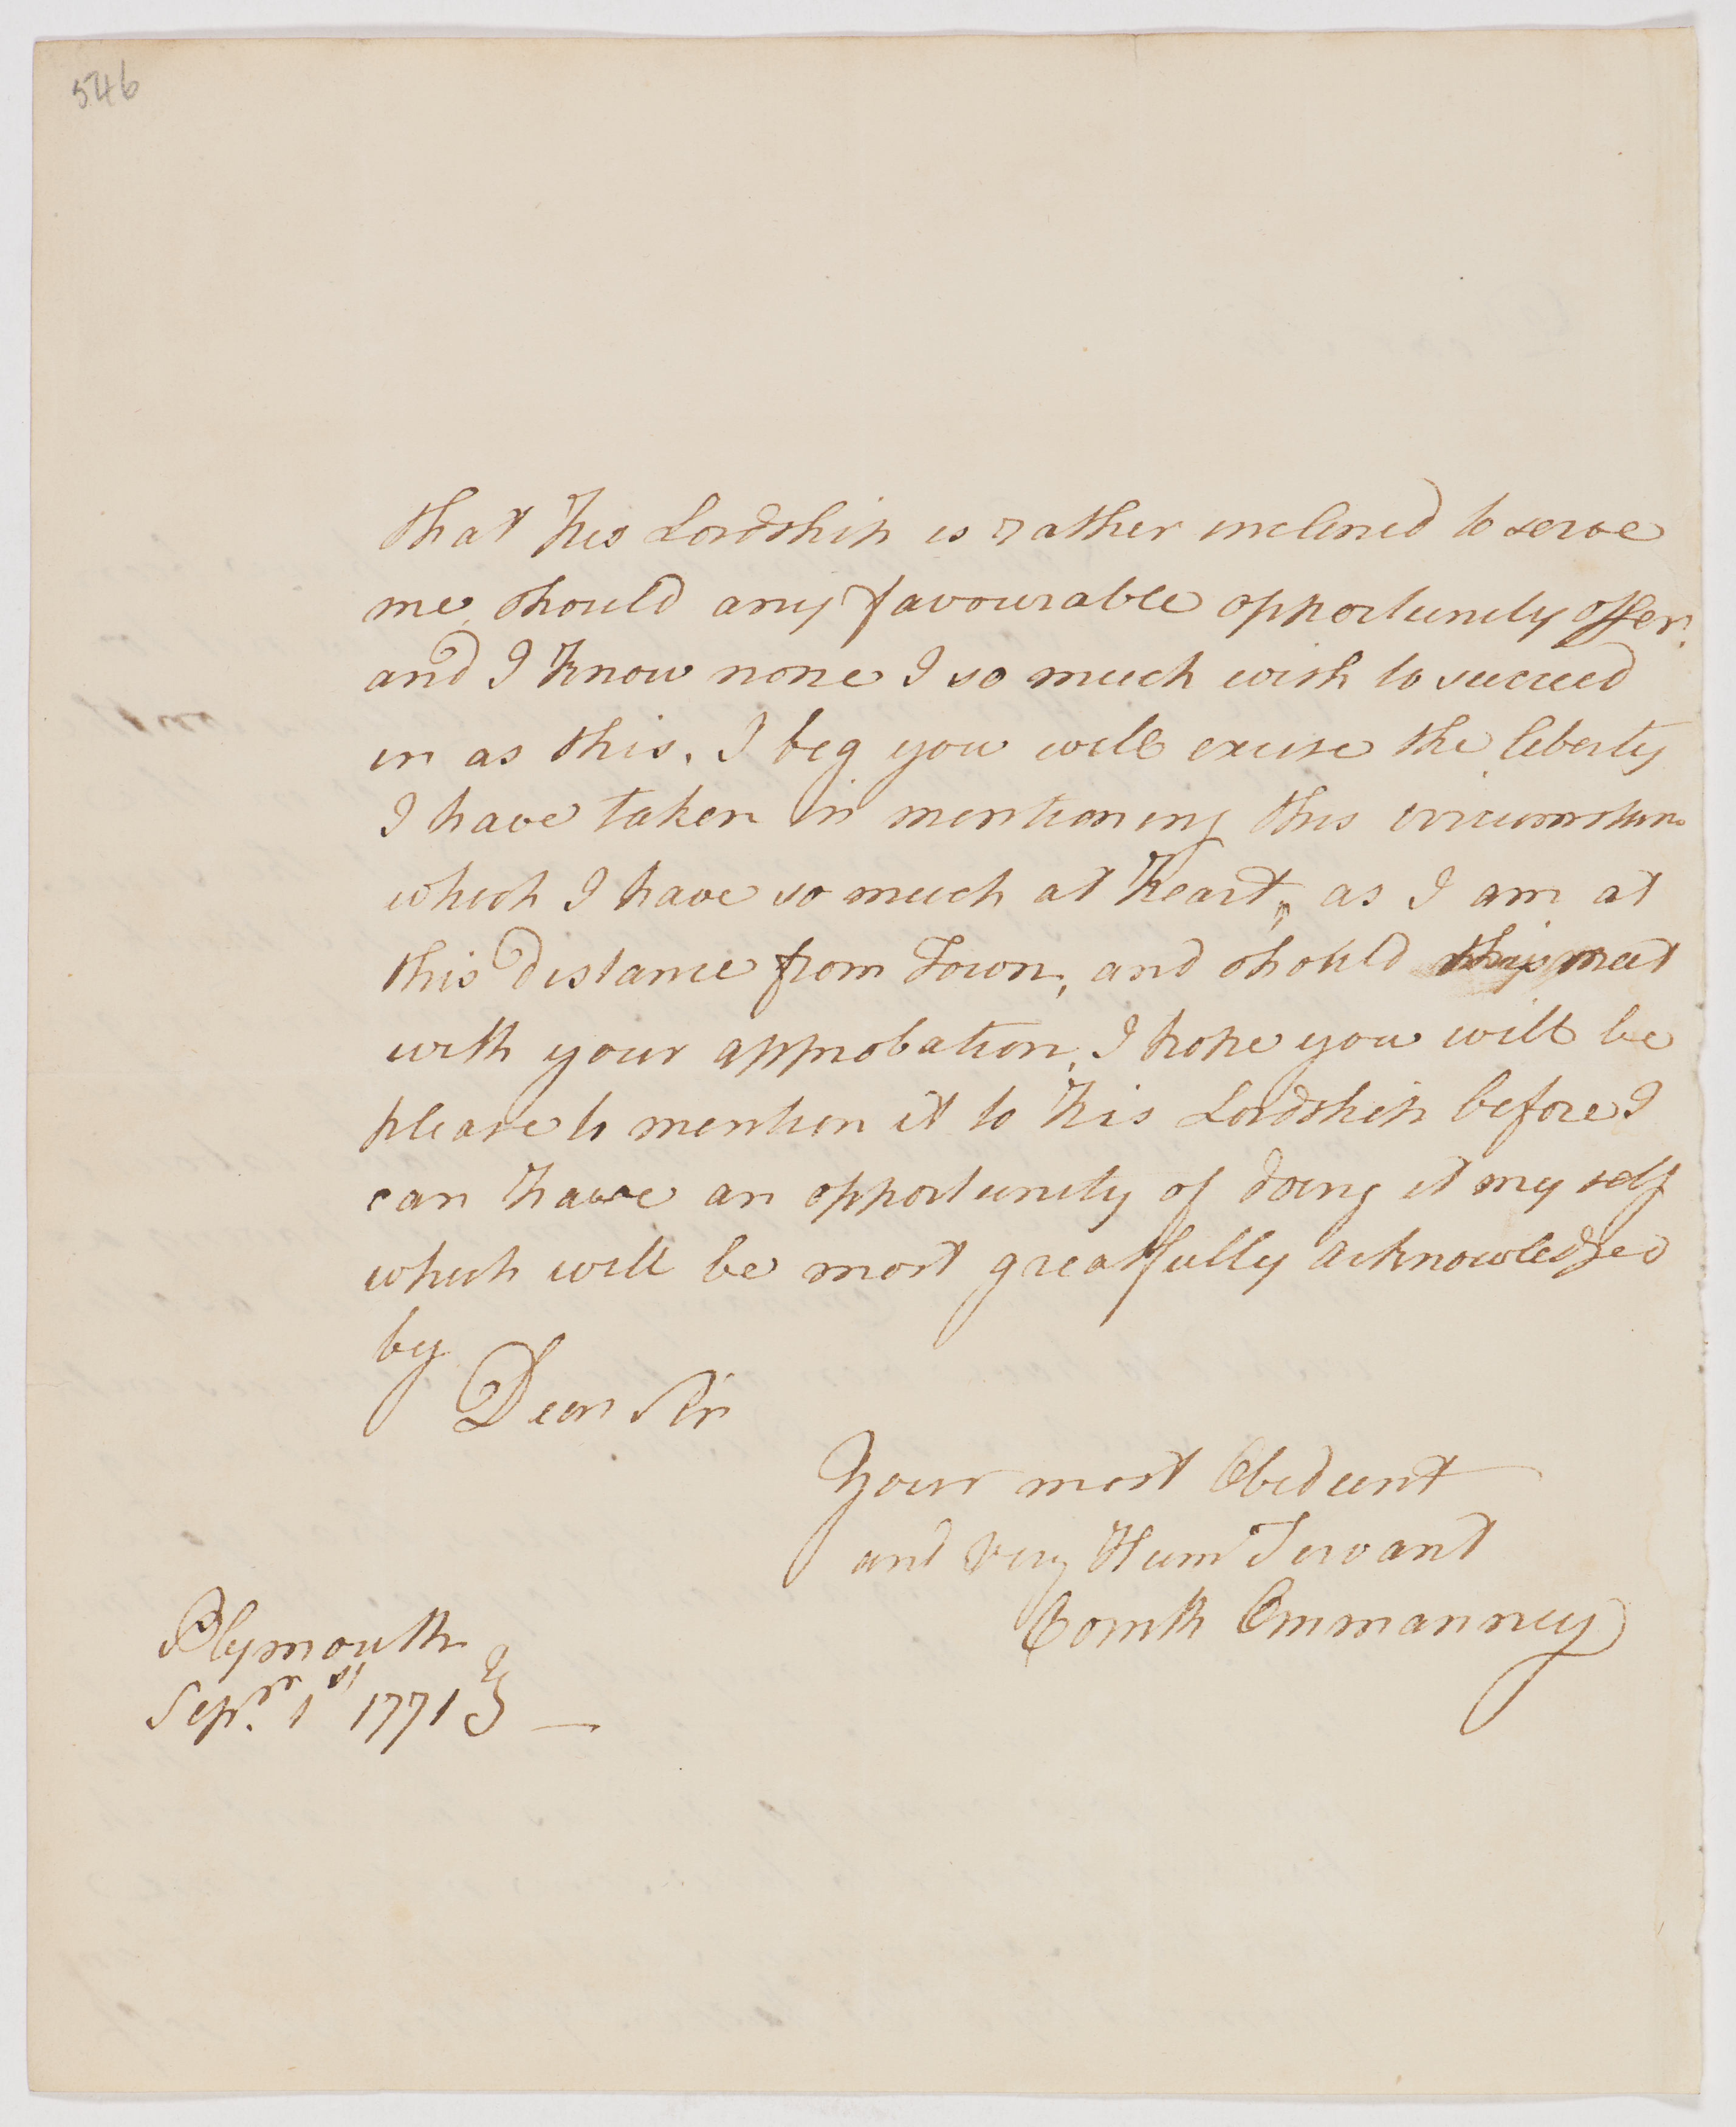 546
that his Lordship is rather inclined to serve
me, should any favourable opportunity offer,
and I know none I so much wish to succeed
in as this. I beg you will excuse the liberty
I have taken in mentioning this circumstan
which I have so much at heart, as I am at
this distance from Town, and should this meet
with your approbation, I hope you will be
please to mention it to his Lordship before I
can have an opportunity of doing it my self
which will be most greatfully acknowledged
by
Dear Sir
Your most Obedient
and very Hum Servant
Ommanney
Plymouth
Sepr. 1st 1771